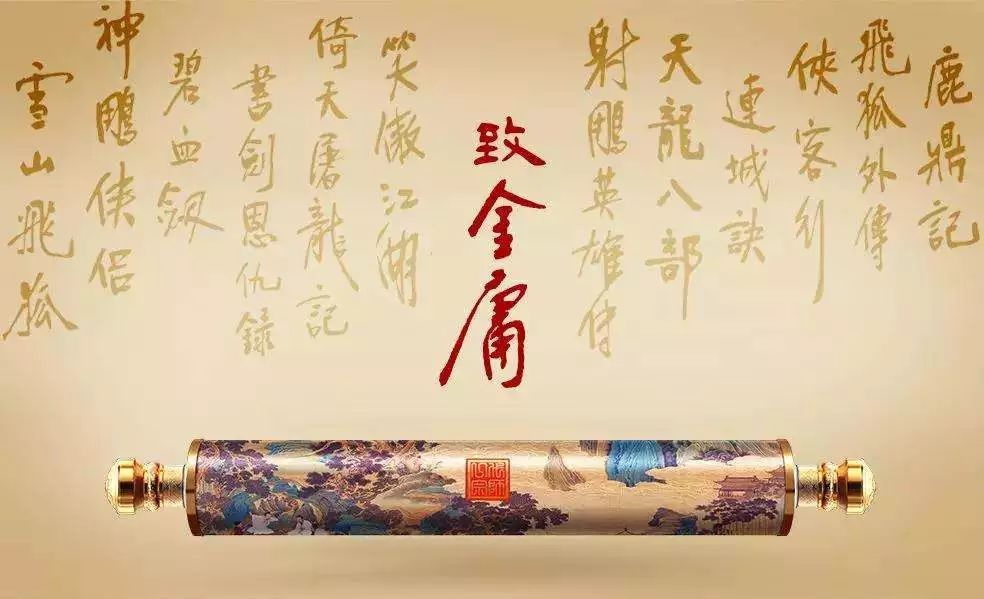 鹿鼎記
飛狐外傳
俠客行
連城訣
天龍八部
射鵰英雄傳
致金庸
笑傲江湖
倚天屠龍記
書劍恩仇錄
碧血劍
神鵰俠侶
雪山飛狐